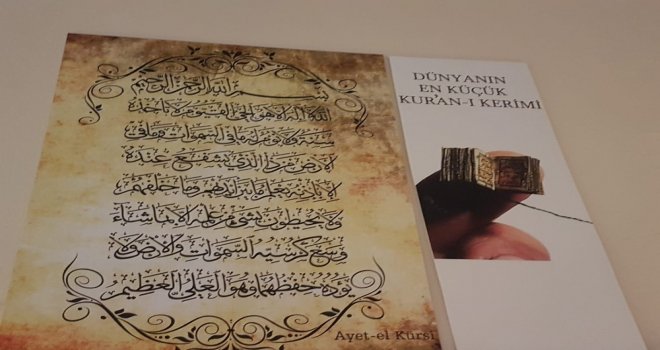 بسم الله الرحمن الرحيم
الله لا اله الا هو الحي القيوم لا تاخذه
سنة ولا نوم له ما في السموات وما في
الارض من ذا الذي يشفع عنده
الا باذنه يعلم ما بين ايديهم وما خلفهم
ولا يحيطون بشيء من علمه الا بما شاء
وسع كرسيه السموات والارض ولا
يؤده حفظهما وهو العلي العظيم
Ayet-el Kürsi
DÜNYANIN
EN KÜÇÜK
KUR'AN-I KERİMİ